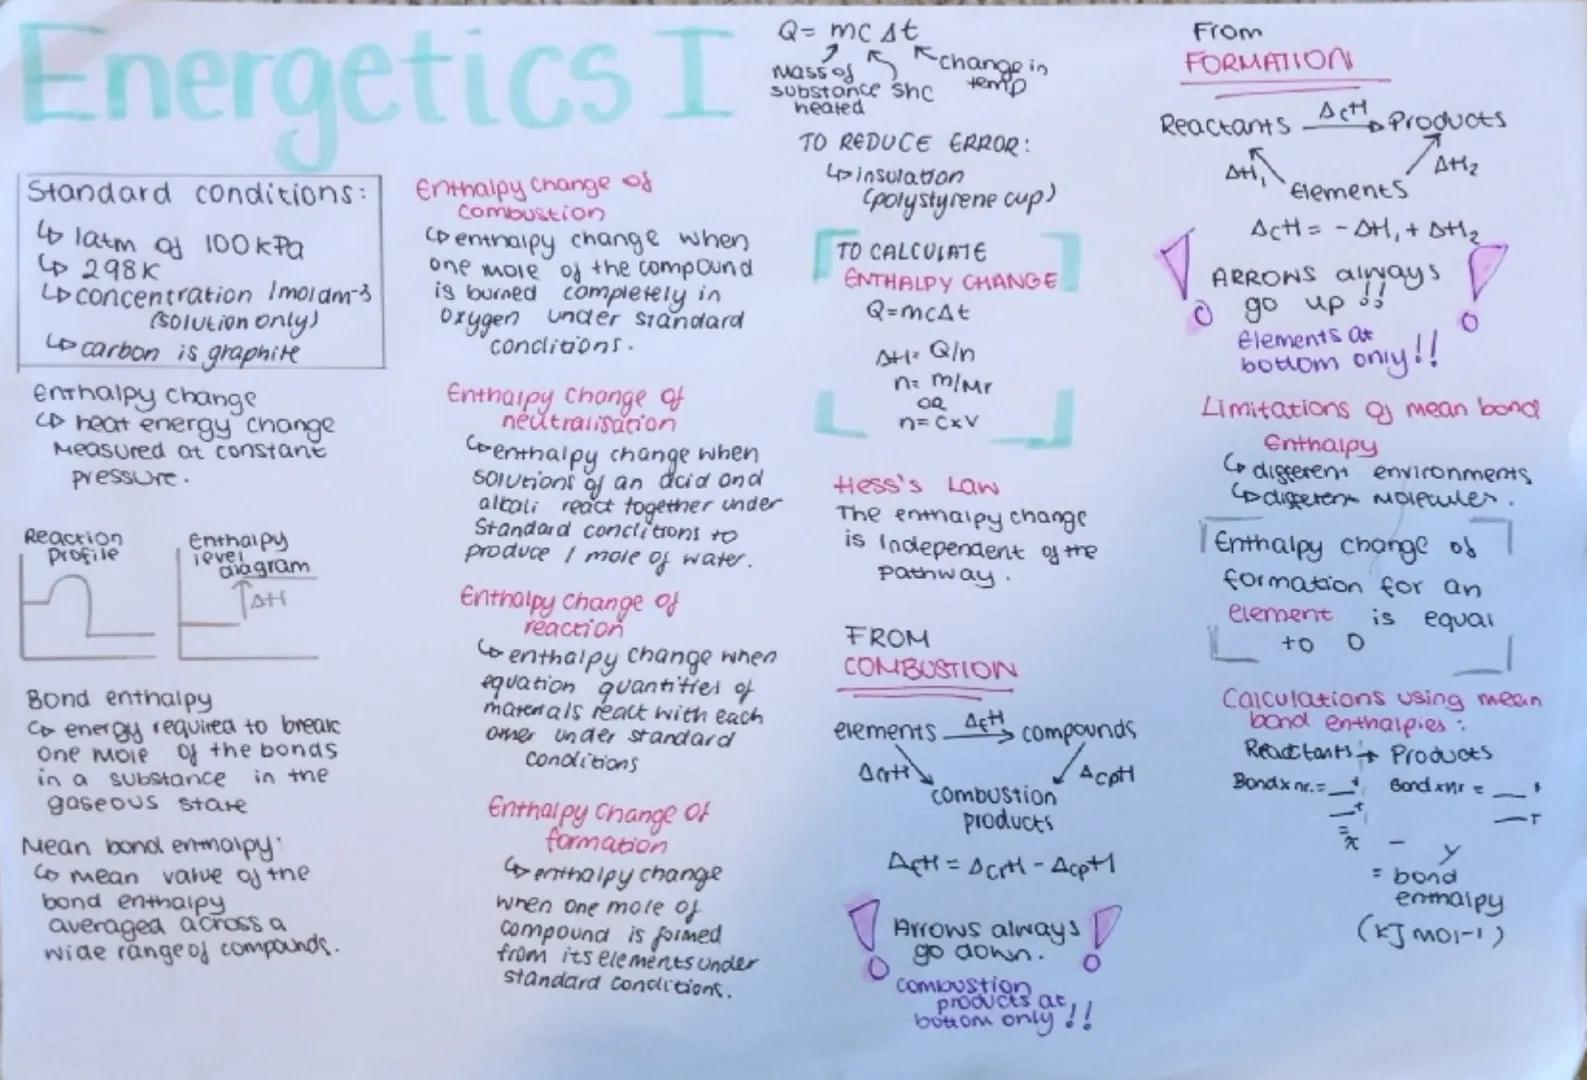 Energetics I
Standard conditions:
↳ 1atm of 100kPa
↳ 298K
↳ concentration 1moldm-3
(solution only)
↳ carbon is graphite
Enthalpy change
↳ heat energy change
measured at constant
pressure.
Reaction
profile
enthalpy
level
diagram
ΔH
Bond enthalpy
↳ energy required to break
one mole of the bonds
in a substance in the
gaseous state
Mean bond enthalpy:
↳ mean value of the
bond enthalpy
averaged across a
wide range of compounds.
Enthalpy change of
combustion
↳ enthalpy change when
one mole of the compound
is burned completely in
oxygen under standard
conditions.
Enthalpy change of
neutralisation
↳ enthalpy change when
solutions of an acid and
alkali react together under
standard conditions to
produce 1 mole of water.
Enthalpy change of
reaction
↳ enthalpy change when
equation quantities of
materials react with each
other under standard
conditions
Enthalpy change of
formation
↳ enthalpy change
when one mole of
compound is formed
from its elements under
standard conditions.
Q= mcΔt
mass of
substance
heated
shc
change in
temp
TO REDUCE ERROR:
↳ insulation
(polystyrene cup)
TO CALCULATE
ENTHALPY CHANGE
Q=mcΔt
ΔH= Q/n
n= m/Mr
OR
n= c×V
Hess's Law
The enthalpy change
is independent of the
pathway.
FROM
COMBUSTION
elements ΔfH → compounds
ΔcrH
ΔcpH
combustion
products
ΔfH = ΔcrH - ΔcpH
Arrows always
go down.
combustion
products at
bottom only !!
From
FORMATION
Reactants ΔcH → Products
ΔH1
ΔH2
Elements
ΔcH = -ΔH1 + ΔH2
ARROWS always
go up !!
Elements at
bottom only!!
Limitations of mean bond
enthalpy
↳ different environments
↳ different molecules.
Enthalpy change of
formation for an
element is equal
to 0
Calculations using mean
bond enthalpies:
Reactants → Products
Bond×nr.= __ + Bond×nr = __ +
__ + __ +
= x - y
= bond
enthalpy
(kJ mol-1)